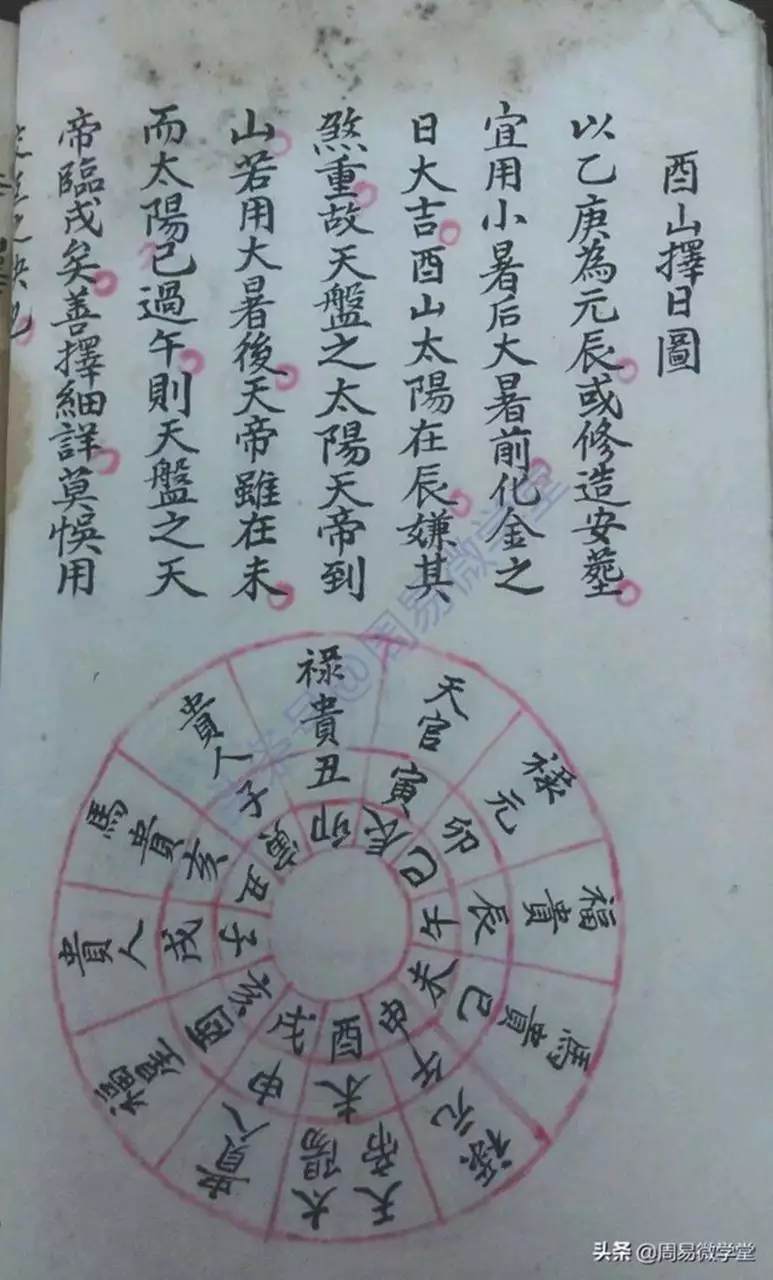 酉山擇日圖
以乙庚為元辰或修造安塟
宜用小暑后大暑前化金之
日大吉酉山太陽在辰嫌其
煞重故天盤之太陽天帝到
山若用大暑後天帝雖在未
而太陽已過午則天盤之天
帝臨戌矣善擇細詳莫悞用
祿貴
丑
卯
天官
寅
辰
祿元
卯
巳
福貴
辰
午
馬貴
巳
未
祿元
午
申
天帝
太陽
未
酉
貴人
申
戌
酉
亥
貴人
戌
子
馬貴
亥
丑
貴人
子
寅
@周易微学堂
头条 @周易微学堂